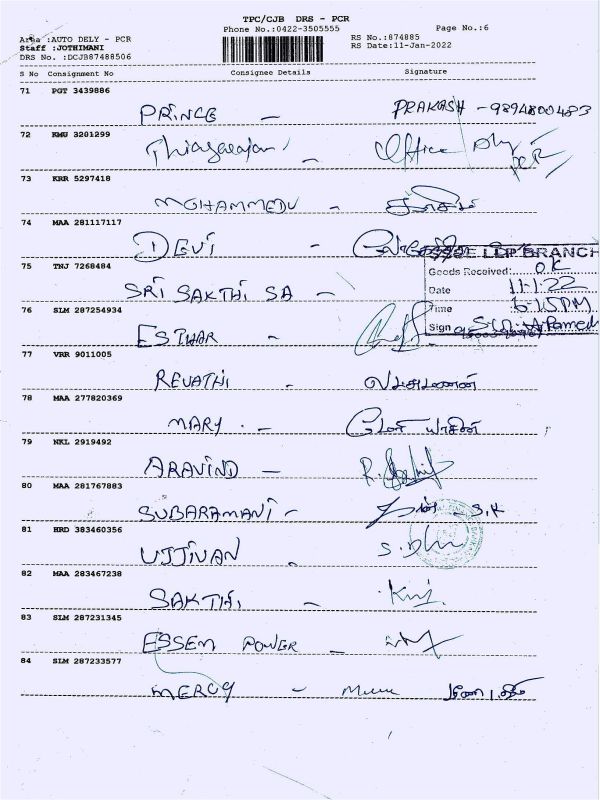 TPC/CJB DRS - PCR
Phone No.:0422-3505555 Page No.:6
Area :AUTO DELY - PCR RS No.:874885
Staff :JOTHIMANI RS Date:11-Jan-2022
DRS No. :DCJB87488506
S No Consignment No Consignee Details Signature
71 PGT 3439886
PRINCE - PRAKASH - 9894800483
72 KMU 3201299
Thiagarajan - Office
73 KRR 5297418
MOHAMMEDU -
74 MAA 281117117
DEVI -
LLP BRANCH
Goods Received: OK
75 TNJ 7268484
Date 11.1.22
SRI SAKTHI SA -
Time 6.15PM
76 SLM 287254934
Sign
ESTHAR -
77 VRR 9011005
REVATHI - லட்சுமணன்
78 MAA 277820369
MARY - மேரி
79 NKL 2919492
ARAVIND -
80 MAA 281767883
SUBARAMANI - S.K
81 HRD 383460356
UJJIVAN -
82 MAA 283467238
SAKTHI -
83 SLM 287231345
ESSEM POWER -
84 SLM 287233577
MERCY -